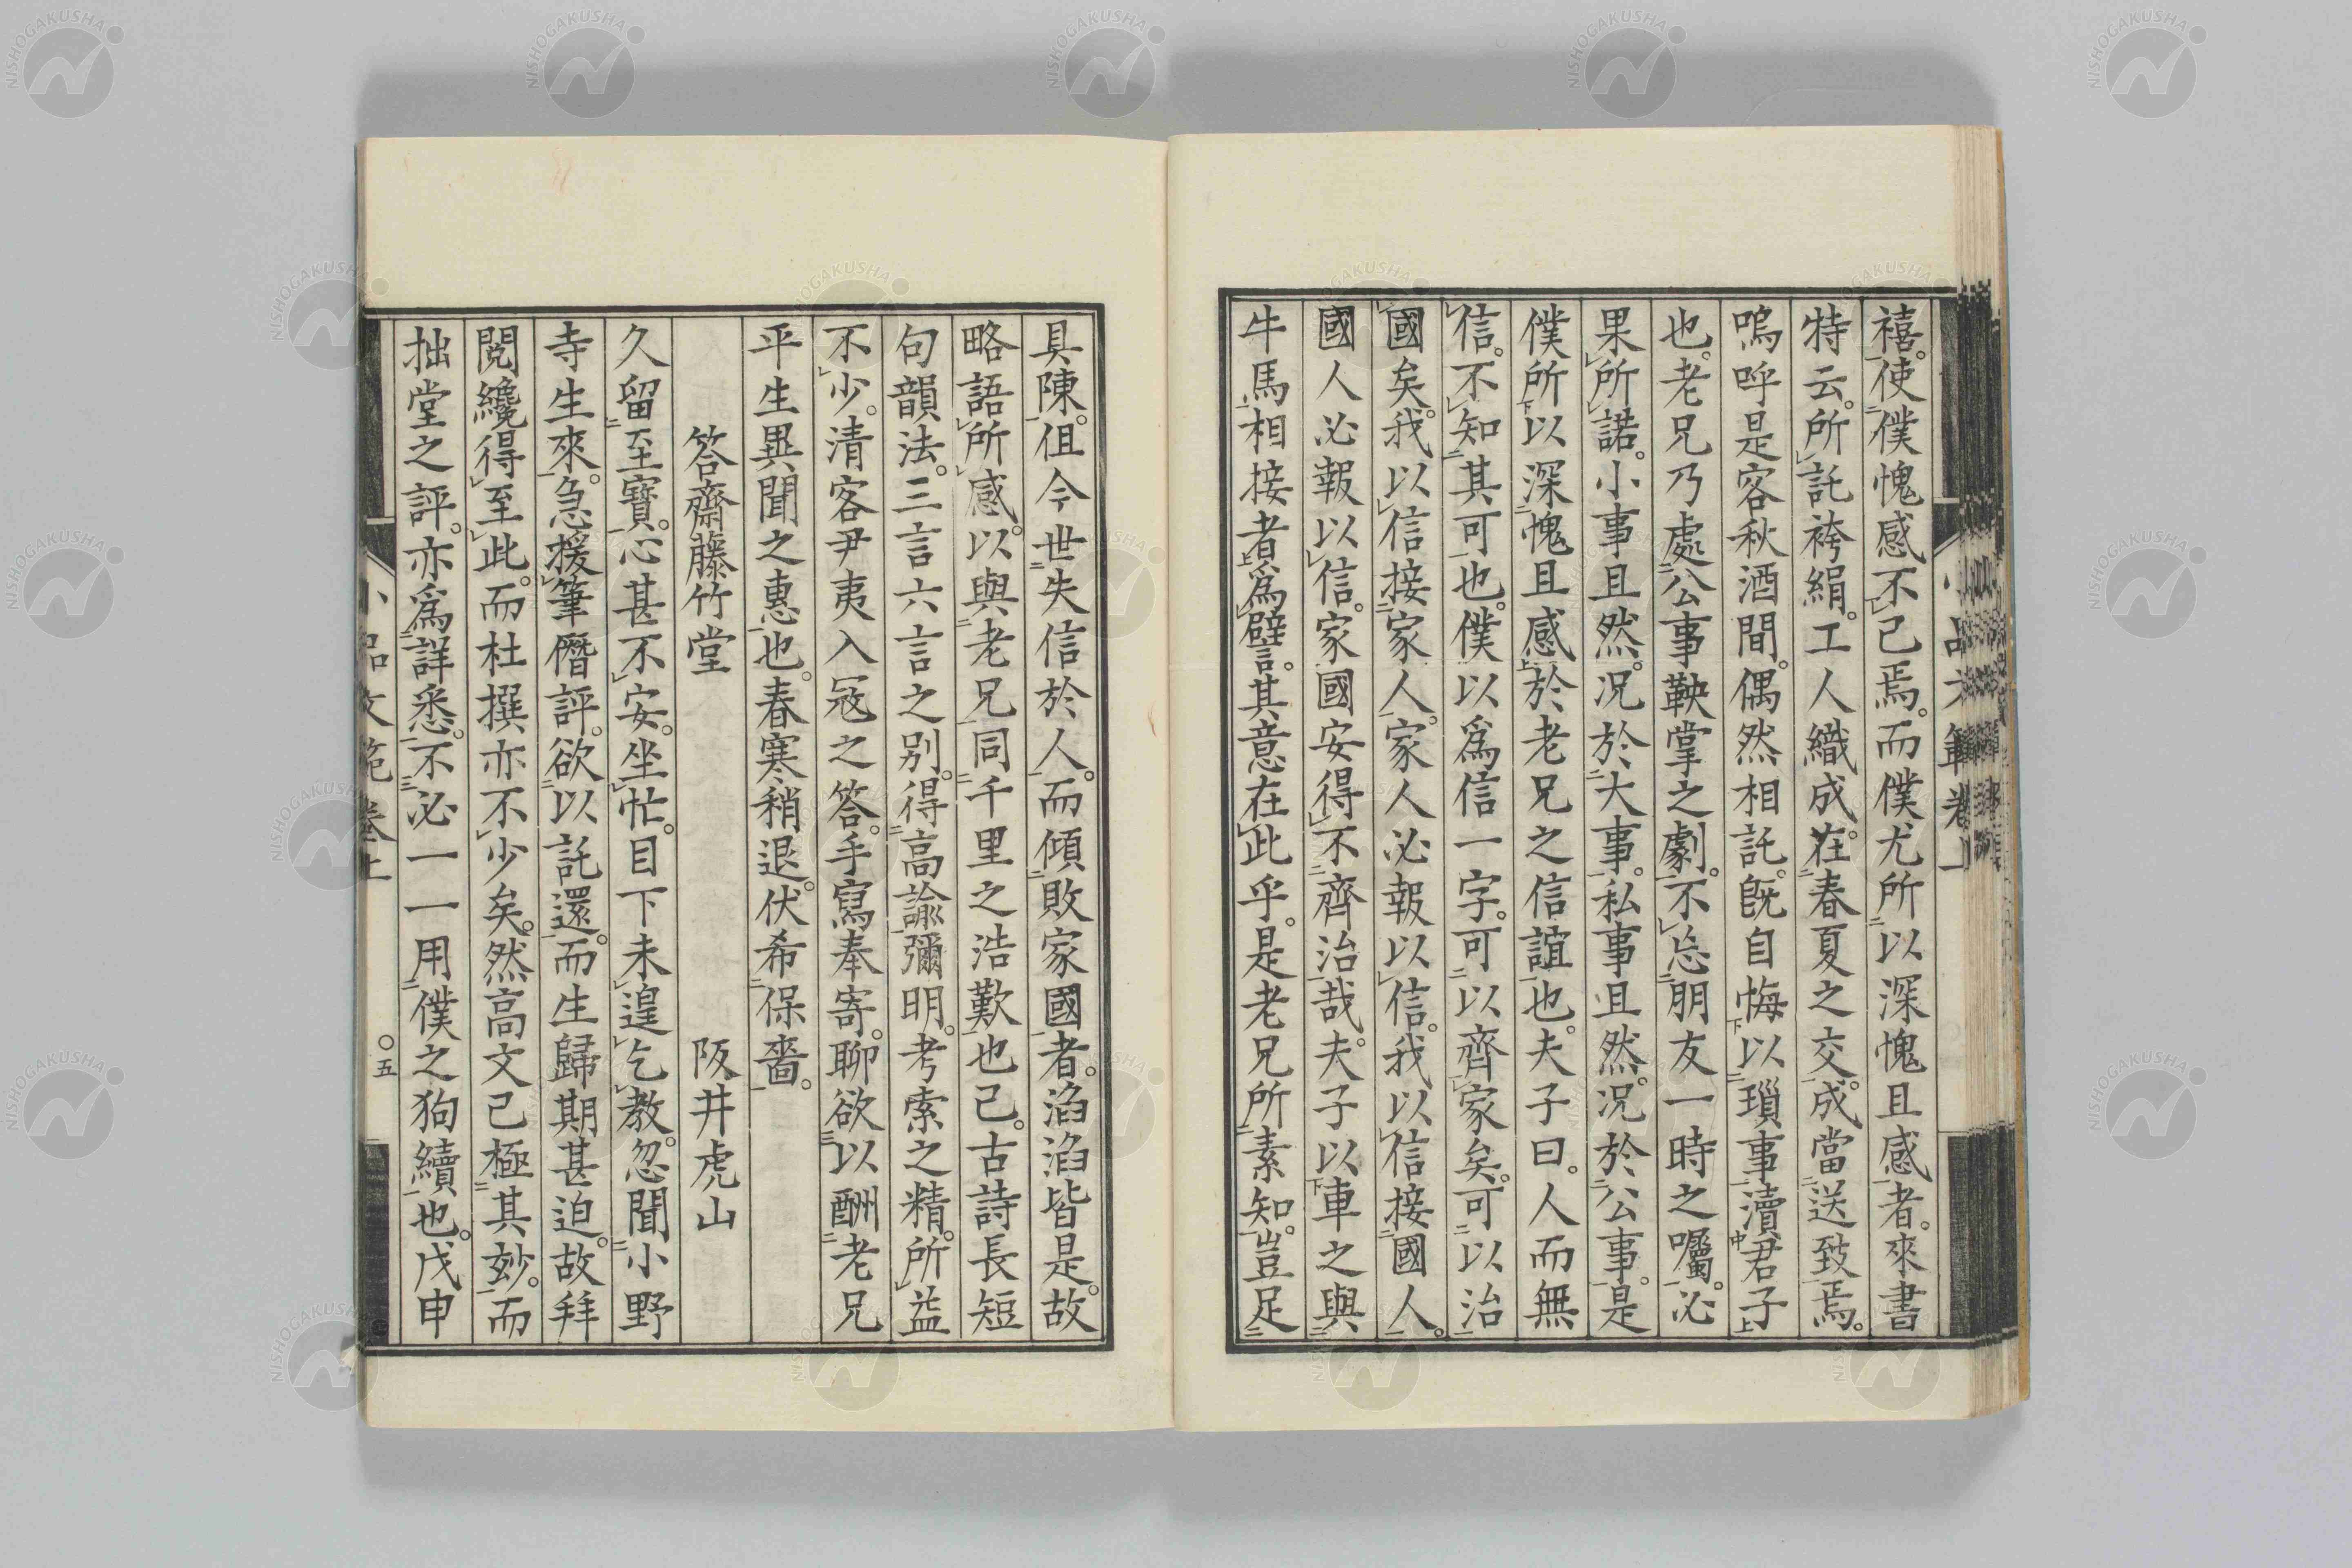 禧。使僕愧感不已焉。而僕尤所以深愧且感者。來書
特云。所託袴絹。工人織成。在春夏之交。成當送致焉。
嗚呼是客秋酒間。偶然相託。旣自悔以瑣事瀆君子
也。老兄乃處公事鞅掌之劇。不忘朋友一時之囑。必
果所諾。小事且然。况於大事。私事且然。况於公事。是
僕所以深愧且感於老兄之信誼也。夫子曰。人而無
信。不知其可也。僕以爲信一字。可以齊家矣。可以治
國矣。我以信接家人。家人必報以信。我以信接國人。
國人必報以信。家國安得不齊治哉。夫子以車之與
牛馬相接者爲譬言。其意在此乎。是老兄所素知。豈足
具陳。但今世失信於人。而傾敗家國者。滔滔皆是。故
略語所感。以與老兄同千里之浩歎也已。古詩長短
句韻法。三言六言之別。得高諭彌明。考索之精。所益
不少。清客尹夷入寇之答。手寫奉寄。聊欲以酬老兄
平生異聞之惠也。春寒稍退。伏希保嗇。
答齋藤竹堂 阪井虎山
久留至寶。心甚不安。坐忙。目下未遑乞教。忽聞小野
寺生來。急援筆僭評。欲以託還。而生歸期甚迫。故拜
閱纔得至此。而杜撰亦不少矣。然高文已極其玅。而
拙堂之評。亦爲詳悉。不必一一用僕之狗續也。戊申
小品文範 卷上
〇五
NISHOGAKUSHA